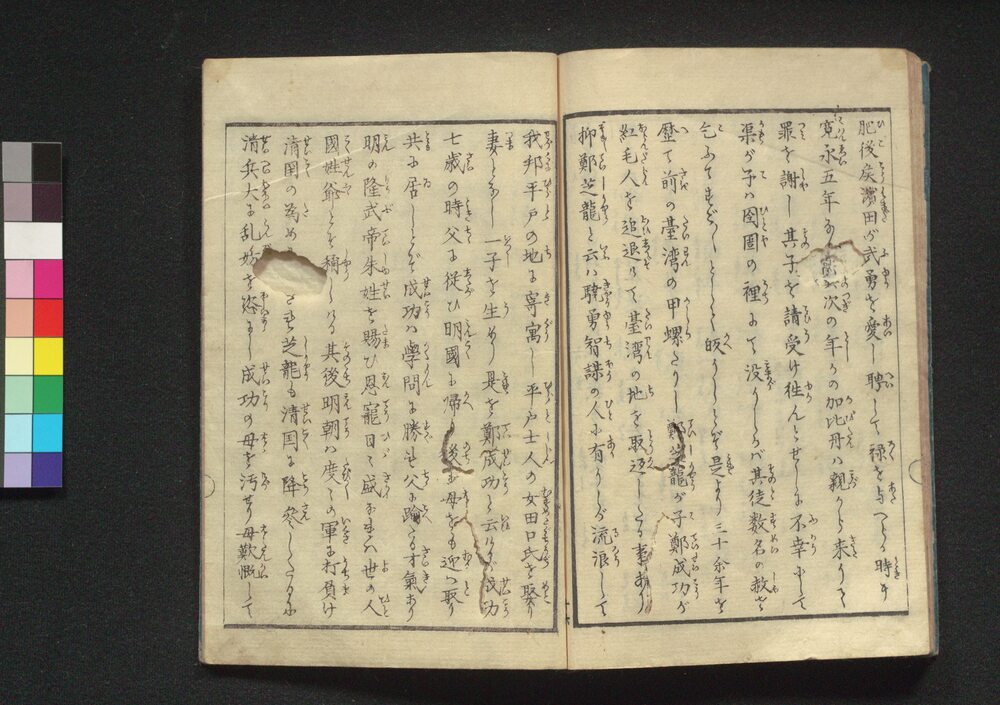 肥後矦濱田が武勇を愛し聘して禄を与へり時
寛永五年 次の年 加比丹ハ親から来りて
罪を謝し其子を請受け徃んとせしに不幸にして
渠が子ハ囹圄の裡にて没しられバ其徒数名の赦を
乞ふて とし 皈りしとぞ是より三十余年を
歴て前の臺湾の甲螺たりし鄭芝龍が子鄭成功が
紅毛人を追退りて臺湾の地を取返したる事あり
抑鄭芝龍と云ハ驍勇智謀の人に有りしが流浪して
我邦平戸の地に寄寓し平戸士人の女田口氏を娶り
妻となし一子を生めり是を鄭成功と云けり成功
七歳の時父に従ひ明國に帰り後に母をも迎へ取り
共に居しとぞ成功ハ學問に勝れ父に踰る才氣あり
明の隆武帝朱姓を賜ひ恩寵日々盛なれハ世の人
國姓爺とぞ稱しける其後明朝ハ度々の軍に打負け
清国の為め 芝龍も清国に降参したるに
清兵大に乱妨を恣にし成功の母を汚せり母歎慨して